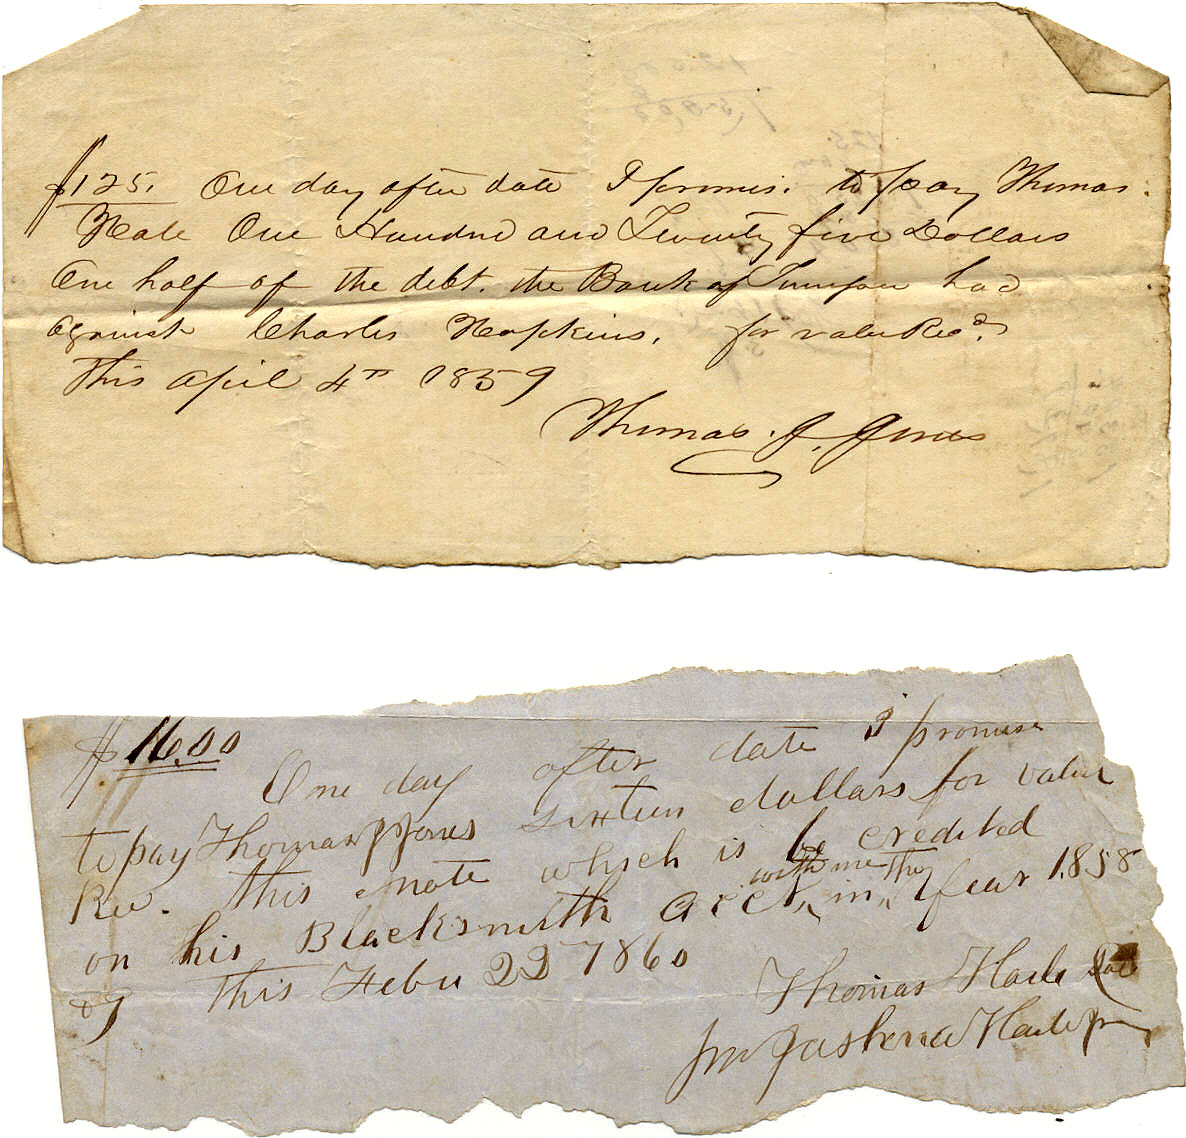 $125. One day after date I promis. to pay Thomas
Hale One Hundred and Twenty five Dollars
One half of the debt. the Bank of Tennessee had
against Charles Hopkins. for value Recd.
This April 4th 1859
Thomas. J. Jones
$16.00
One day after date I promise
to pay Thomas J Jones sixteen dollars for value
Rec. this note which is to be credited
on his Blacksmith acct, with me in the year 1858
&9 this Febu 22 1860
Thomas Hale
Hale